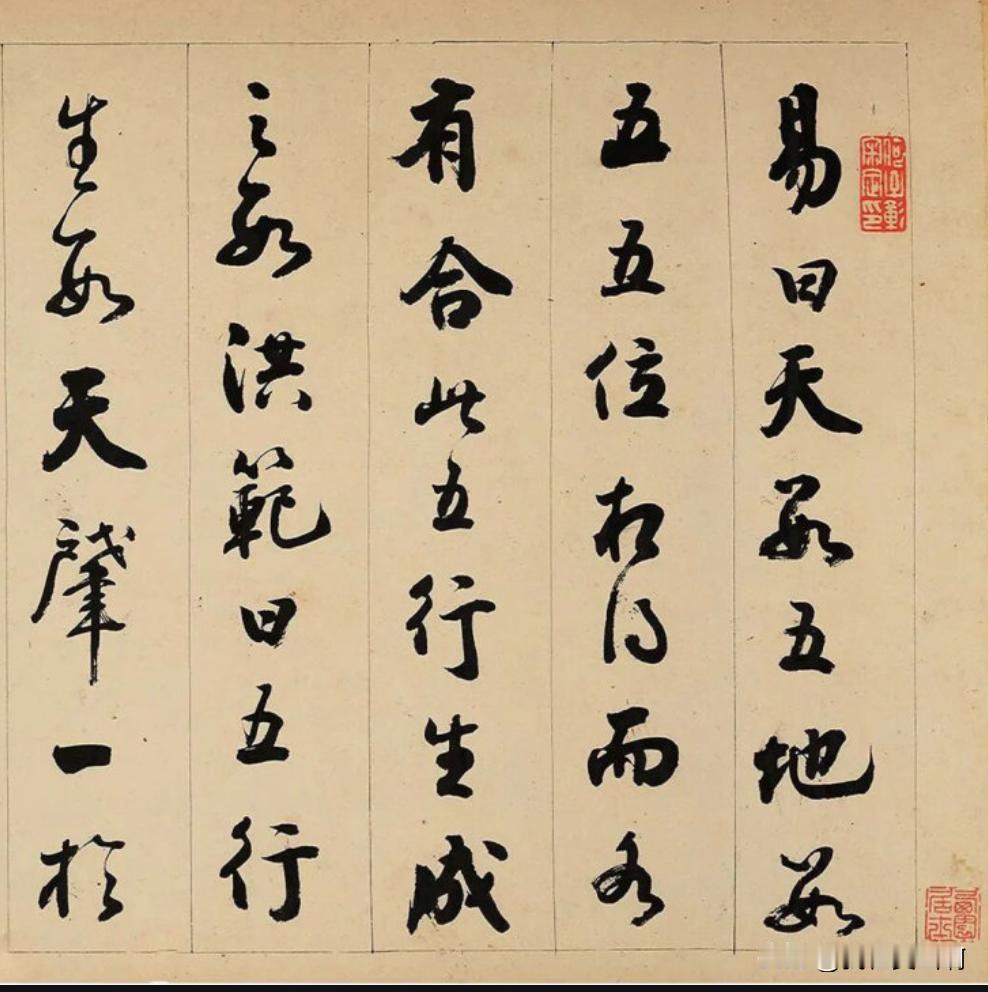 易曰天數五地數
五五位相得而各
有合此五行生成
之數洪範曰五行
生數天肇一於